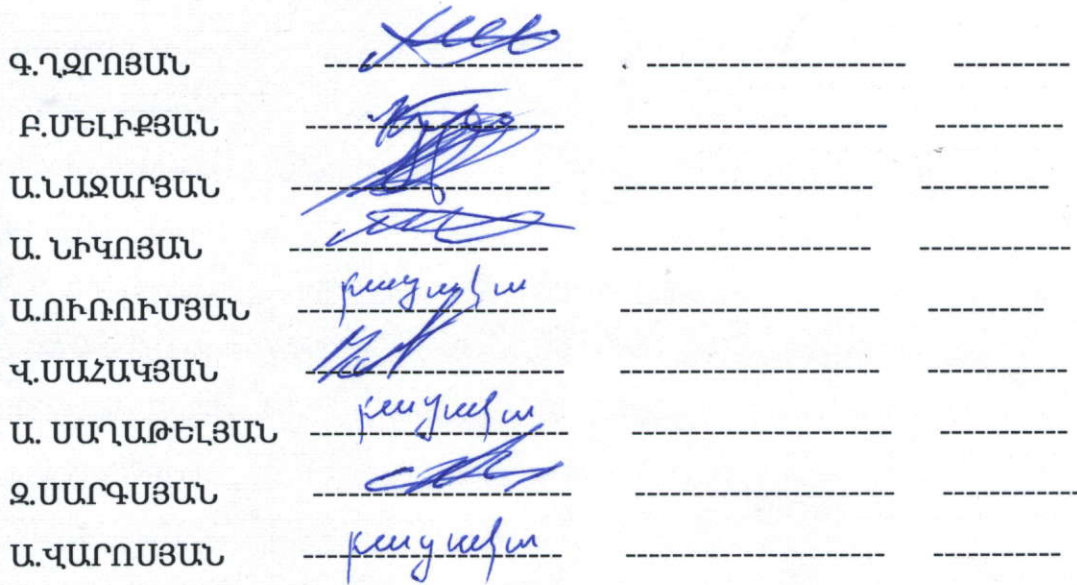 Գ.ՂԶՐՈՅԱՆ
Բ.ՄԵԼԻՔՅԱՆ
Ա.ՆԱՋԱՐՅԱՆ
Ա. ՆԻԿՈՅԱՆ
Ա.ՈՒՌՈՒՄՅԱՆ բացակա
Վ.ՍԱՀԱԿՅԱՆ
Ա. ՍԱՂԱԹԵԼՅԱՆ բացակա
Զ.ՍԱՐԳՍՅԱՆ
Ա.ՎԱՐՈՍՅԱՆ բացակա